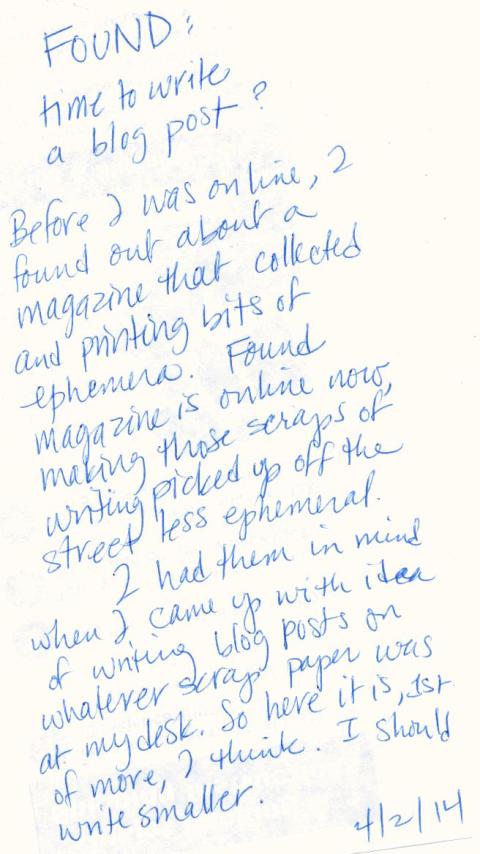 FOUND:
time to write
a blog post?
Before I was online, I
found out about a
magazine that collected
and printing bits of
ephemera. Found
magazine is online now,
making those scraps of
writing picked up off the
street less ephemeral.
I had them in mind
when I came up with idea
of writing blog posts on
whatever scrap paper was
at my desk. So here it is, 1st
of more, I think. I should
write smaller.
4/2/14